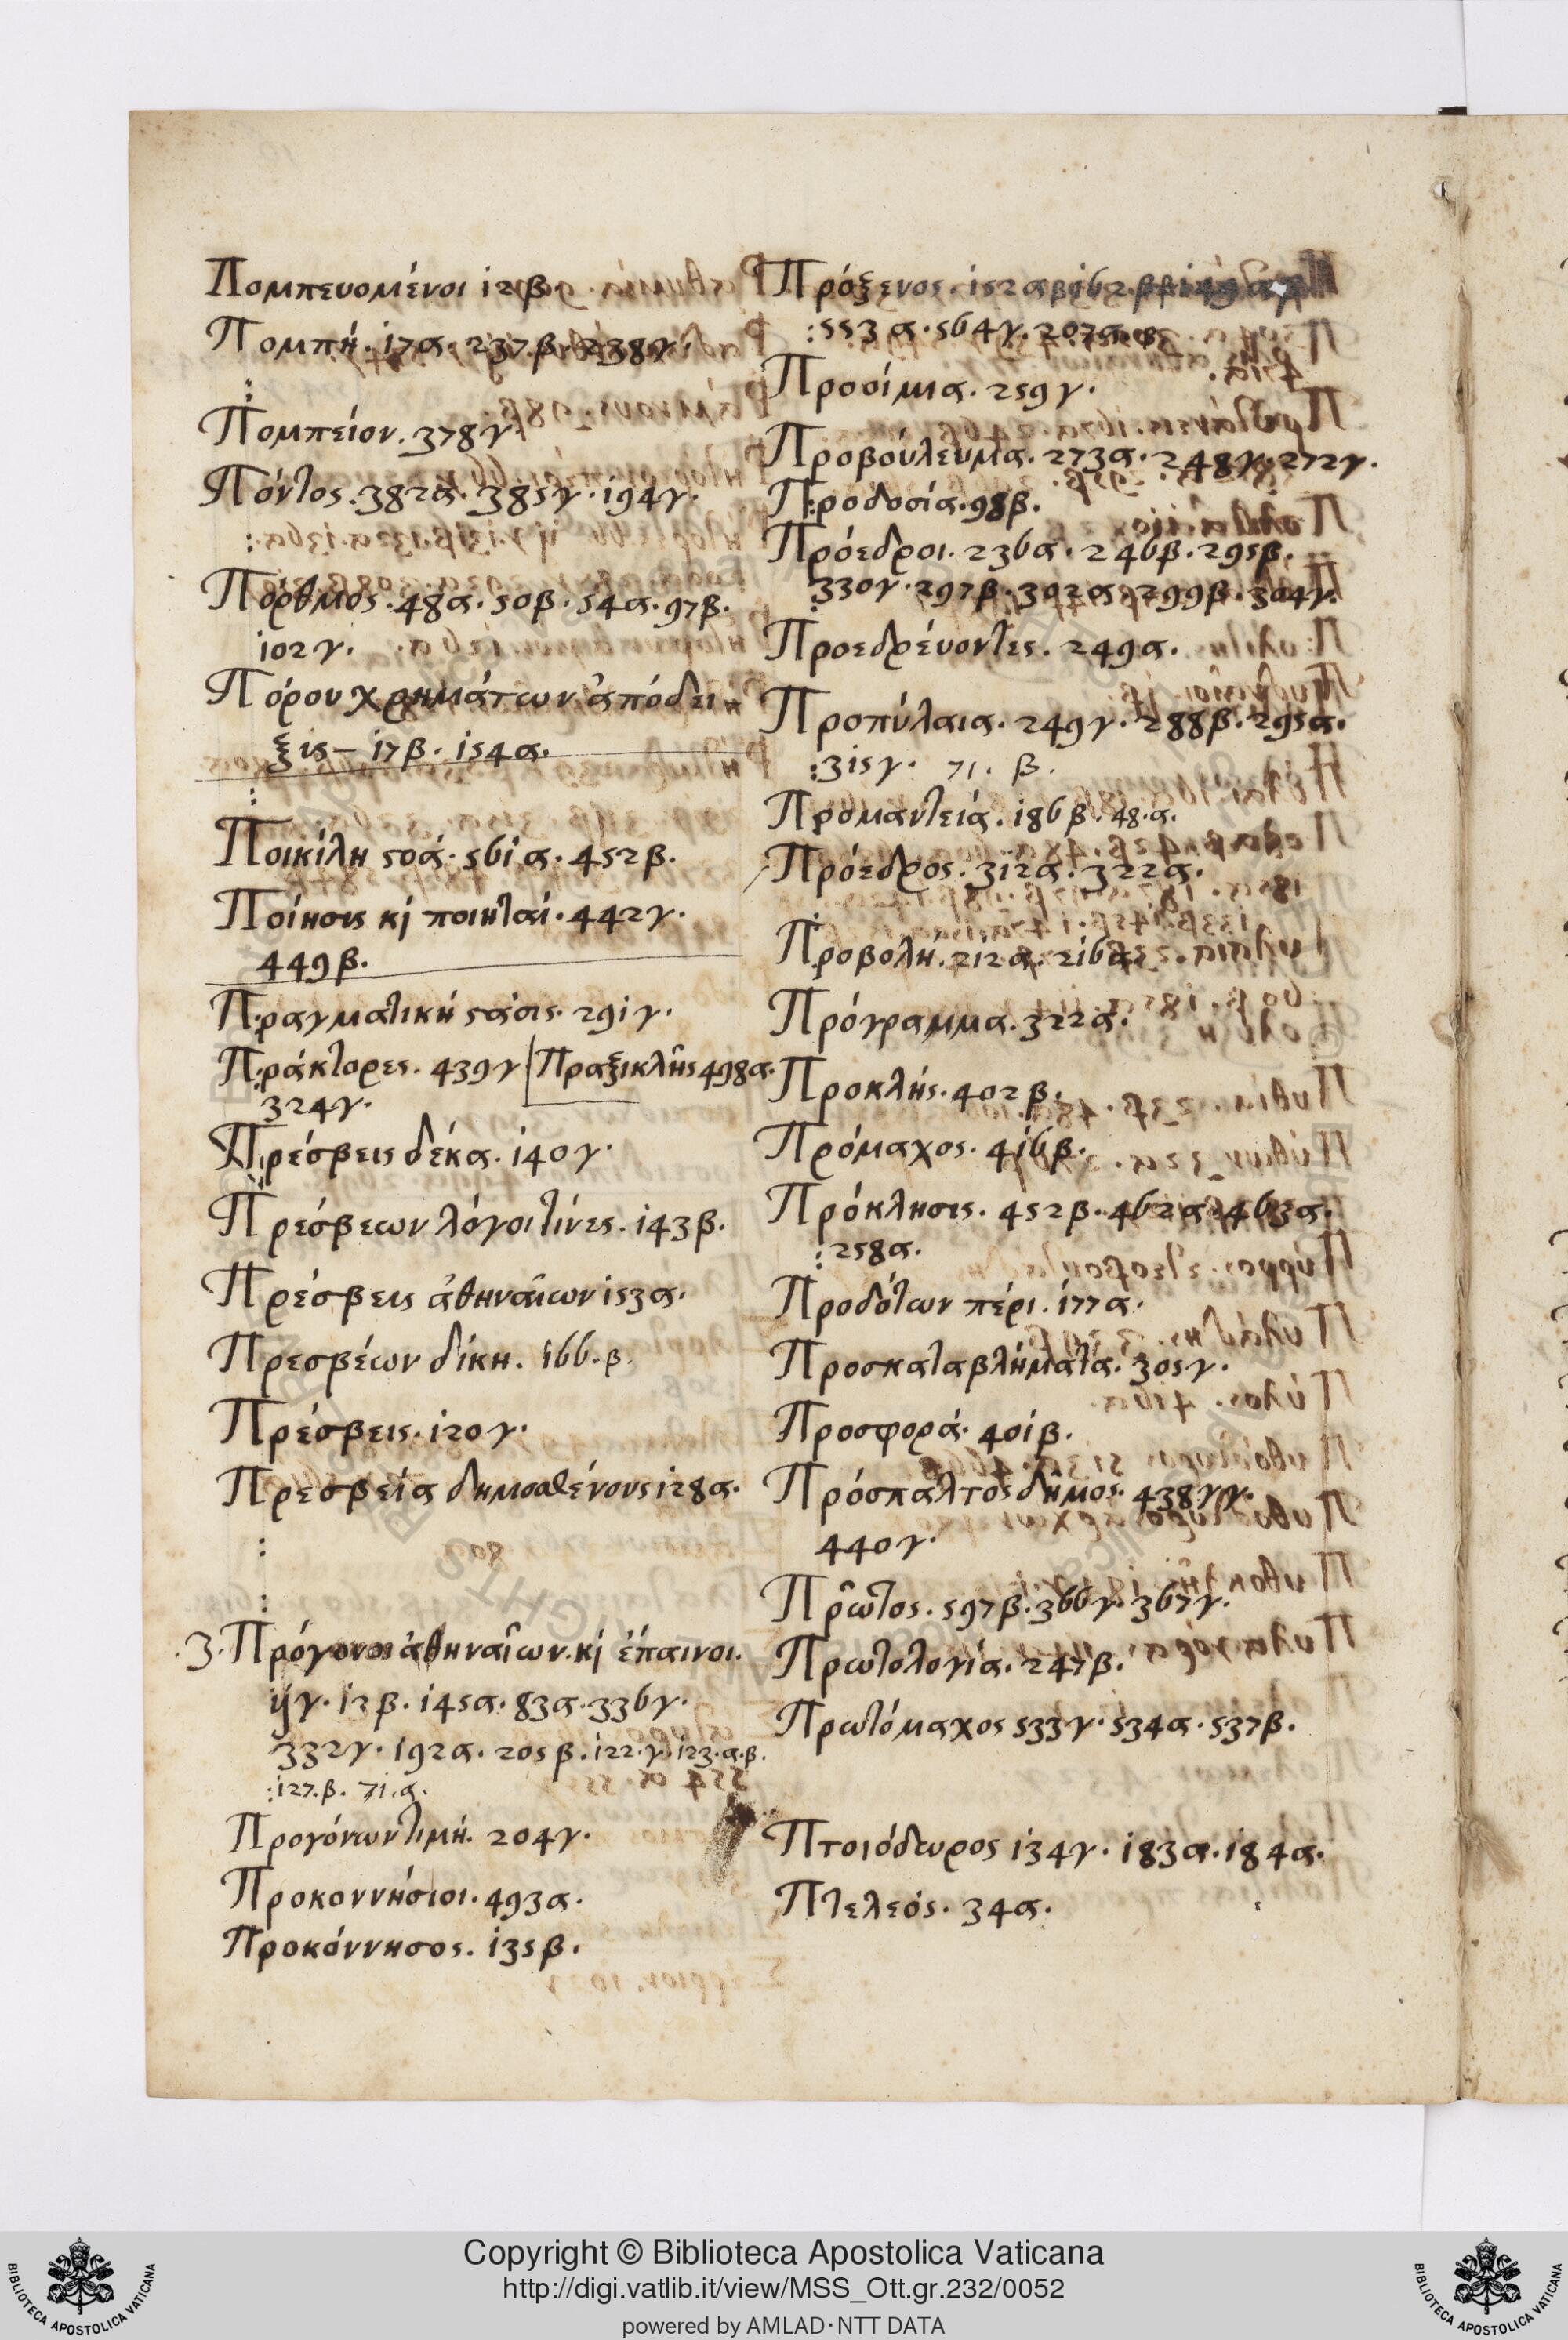 Πομπευομένοι 12β.
Πομπή. 17α. 237.β. 238γ.
:
Πομπείον. 378γ.
Πόντος. 382α. 385γ. 194γ.
:
Πόρθμος. 48α. 50β. 54α. 97β.
102γ.
Πόρου χρημάτων ἀπόδει-
ξις – 17β. 154α.
:
Ποικίλη ϛοά. 561α. 452β.
Ποίησις κὶ ποιηταί. 442γ.
449β.
Πραγματική ϛάσις. 291γ.
Πράκτορες. 439γ Πραξικλῆς 498α.
324γ.
Πρέσβεις δέκα. 140γ.
Πρέσβεων λόγοι τίνες. 143β.
Πρέσβεις ἀθηναίων 153α.
Πρεσβέων δίκη. 166.β.
Πρέσβεις. 120γ.
Πρεσβεία δημοσθένους 128α.
:
:
.3. Πρόγονοι ἀθηναίων. κὶ ἐπαινοι.
11γ. 12β. 145α. 83α. 336γ.
332γ. 192α. 205β. 122.γ. 123.α.β.
:127.β. 71.α.
Προγόνων τιμή. 204γ.
Προκοννήσιοι. 493α.
Προκόννησος. 135β.
Πρόξενος. 152αβ 162.ββ
:553α. 564γ. 207α.β.
Προοίμια. 259γ.
Προβούλευμα. 273α. 248γ. 272γ.
Προδοσία. 98β.
Πρόεδροι. 236α. 246β. 295β.
330γ. 297β. 302α. 299β. 304γ.
Προεδρεύοντες. 249α.
Προπύλαια. 249γ. 288β. 295α.
:315γ. 71. β.
Προμαντειά. 186β. 48.α.
Πρόεδρος. 312α. 322α.
Προβολή. 212α. 216α.
Πρόγραμμα. 322α.
Προκλής. 402β.
Πρόμαχος. 416β.
Πρόκλησις. 452β. 462α. 463α.
:258α.
Προδότων πέρι. 177α.
Προσκαταβλήματα. 305γ.
Προσφορά. 401β.
Πρόσπαλτος δήμος. 438γγ.
440γ.
Πρῶτος. 597β. 366γ. 367γ.
Πρωτολογία. 247β.
Πρωτόμαχος 533γ. 534α. 537β.
Πτοιόδωρος 134γ. 183α. 184α.
Πτελεός. 34α.
Copyright © Biblioteca Apostolica Vaticana
http://digi.vatlib.it/view/MSS_Ott.gr.232/0052
powered by AMLAD·NTT DATA
BIBLIOTECA APOSTOLICA VATICANA
BIBLIOTECA APOSTOLICA VATICANA